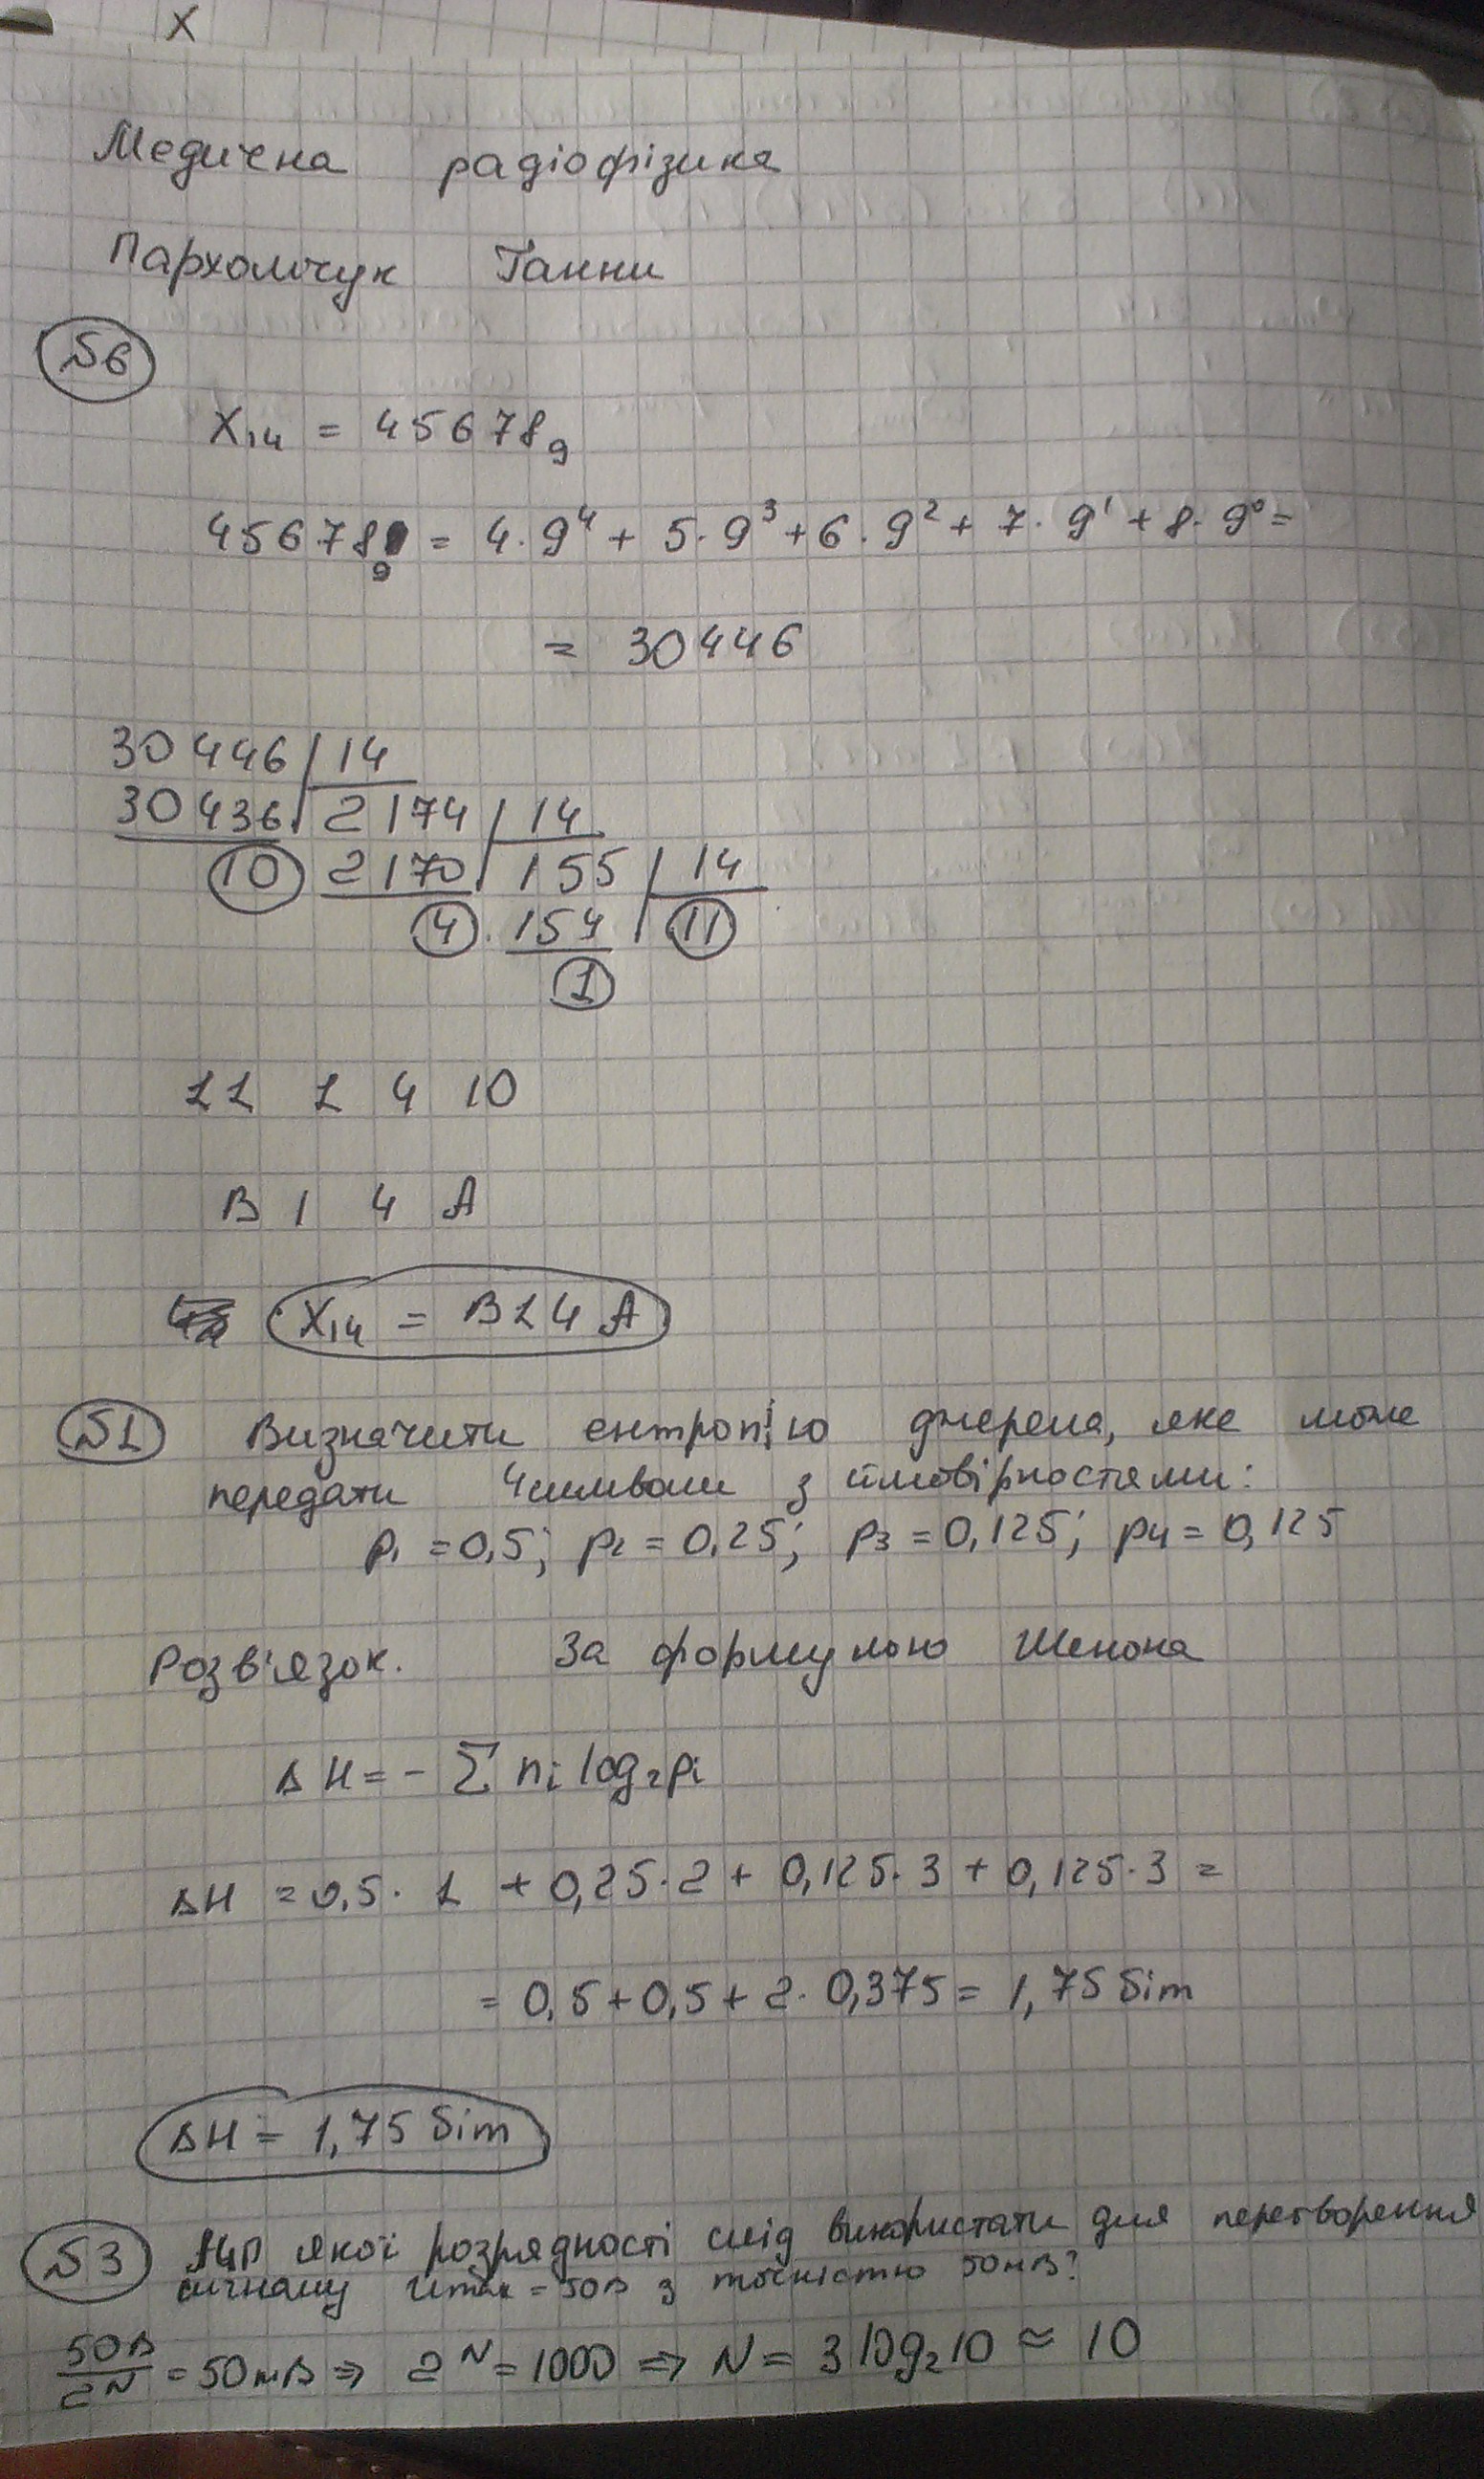 X
Медична радіофізика
Пархомчук Ганни
№6
X₁₄ = 45678₉
45678₉ = 4·9⁴ + 5·9³ + 6·9² + 7·9¹ + 8·9⁰ =
= 30446
30446 | 14
30436 | 2174 | 14
10 2170 | 155 | 14
4 154 | 11
1
11 1 4 10
B 1 4 A
X₁₄ = B14A
№1 Визначити ентропію джерела, яке може
передати 4 символи з ймовірностями:
p₁ = 0,5; p₂ = 0,25; p₃ = 0,125; p₄ = 0,125
Розв'язок. За формулою Шенона
ΔH = - Σ nᵢ log₂pᵢ
ΔH = 0,5·1 + 0,25·2 + 0,125·3 + 0,125·3 =
= 0,5 + 0,5 + 2·0,375 = 1,75 біт
ΔH = 1,75 біт
№3 АЦП якої розрядності слід використати для перетворення
сигналу Umax = 50В з точністю 50мВ?
50В/2ᴺ = 50мВ ⇒ 2ᴺ = 1000 ⇒ N = 3 log₂10 ≈ 10